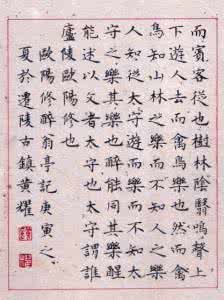 而賓客從也樹林陰翳鳴聲上
下遊人去而禽鳥樂也然而禽
鳥知山林之樂而不知人之樂
人知從太守遊而樂而不知太
守之樂其樂也醉能同其樂醒
能述以文者太守也太守謂誰
廬陵歐陽修也
歐陽修醉翁亭記庚寅之
夏於遷陵古鎮黃燿